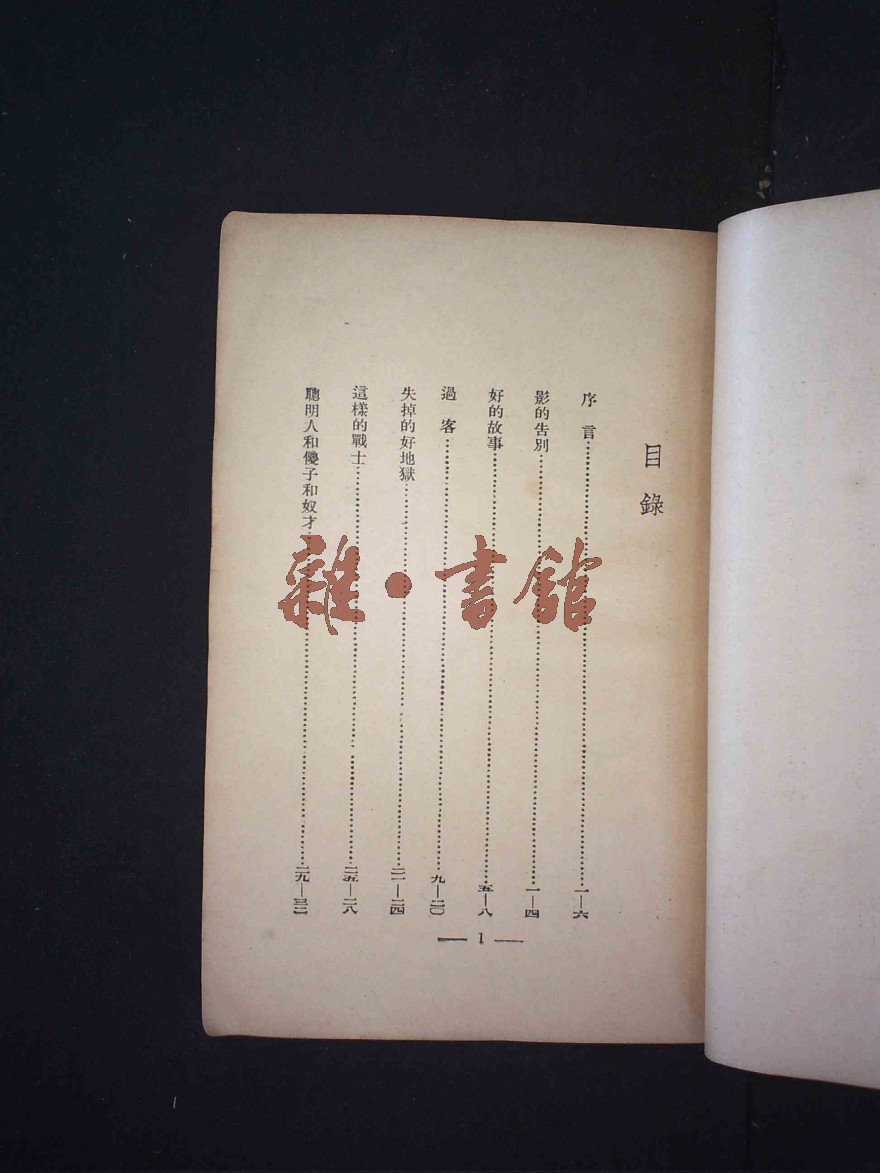 目錄
序言……一—六
影的告別……一—四
好的故事……五—八
過客……九—二〇
失掉的好地獄……二一—二四
這樣的戰士……二五—二八
聰明人和傻子和奴才……二九—三二
— 1 —
雜·書館